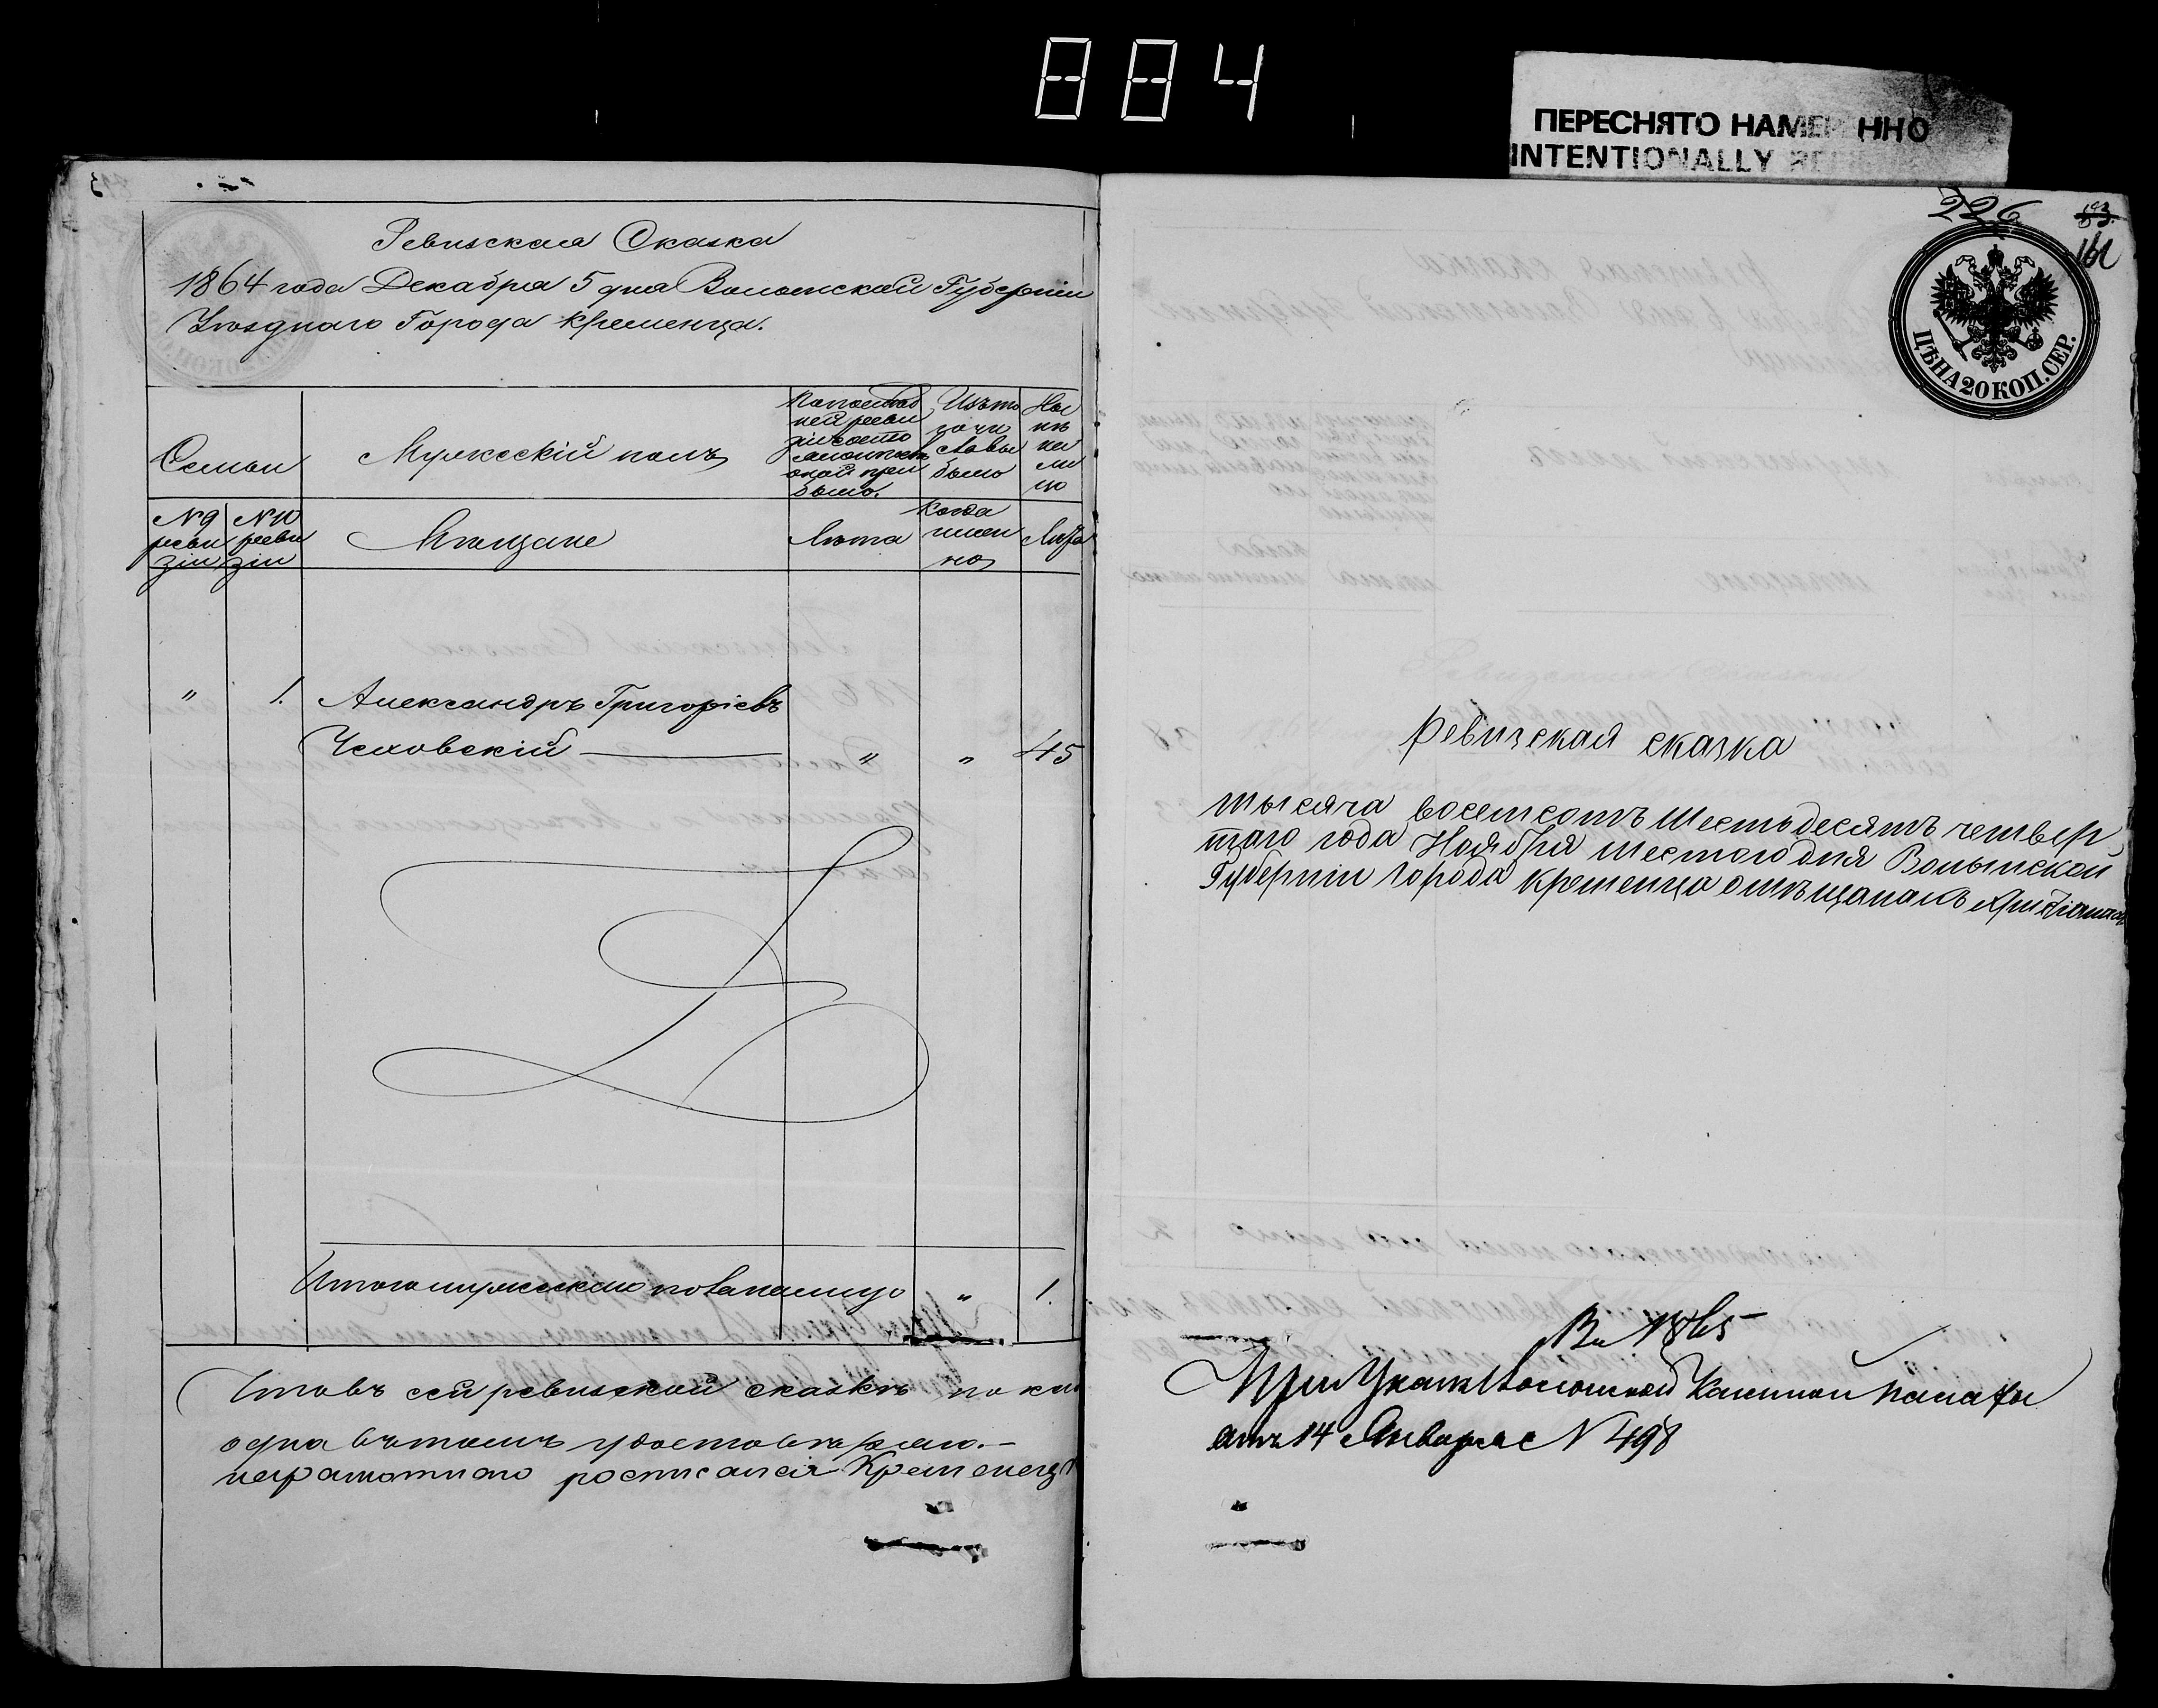 884
ПЕРЕСНЯТО НАМЕР ННО
INTENTIONALLY
Ревизская Сказка
1864 года Декабря 5 дня Волынской Губерніи
Уѣзднаго Города Кременца.
Семьи
Мужескій полъ
По послѣд
ней реви
зіи состо
было.
Изъ то
го чи
сла вы
было
Ны
нѣ
на
ли
цо
№ 9 реви зіи
№ 10 реви зіи
Мѣщане
Лѣта
Когда имен но
Лѣта
" 1. Александръ Григоріевъ
Чеховскій " " 45
Итого мужеска пола на лицо " 1.
Что въ сей ревизской сказкѣ показ
одна въ томъ удостовѣряю.—
неграмотнаго росписался Кременец
226
53.
161
ЦѢНА 20 КОП. СЕР.
Ревизская сказка
тысяча восемсотъ шестьдесятъ четвер
таго года Ноября шестого дня Волынской
Губерніи города Кременца о мѣщанахъ христіанахъ
Вн 1865
При Указѣ Волынской Казенной палаты
отъ 14 Января с № 498